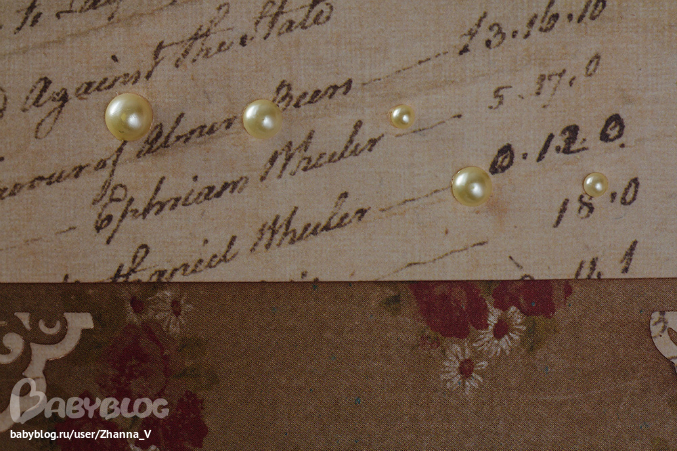 Against the State 13.16.10
favour of Abner Been 5.17.0
Ephriam Wheeler 0.12.0
Wheeler 18.0
BABYBLOG
babyblog.ru/user/Zhanna_V